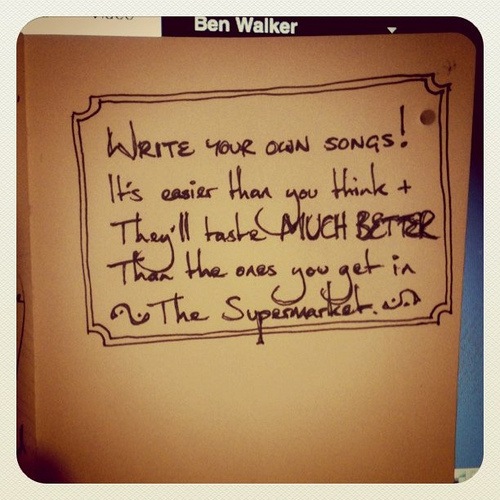 Ben Walker
WRITE YOUR OWN SONGS!
It's easier than you think +
They'll taste MUCH BETTER
Than the ones you get in
The Supermarket.